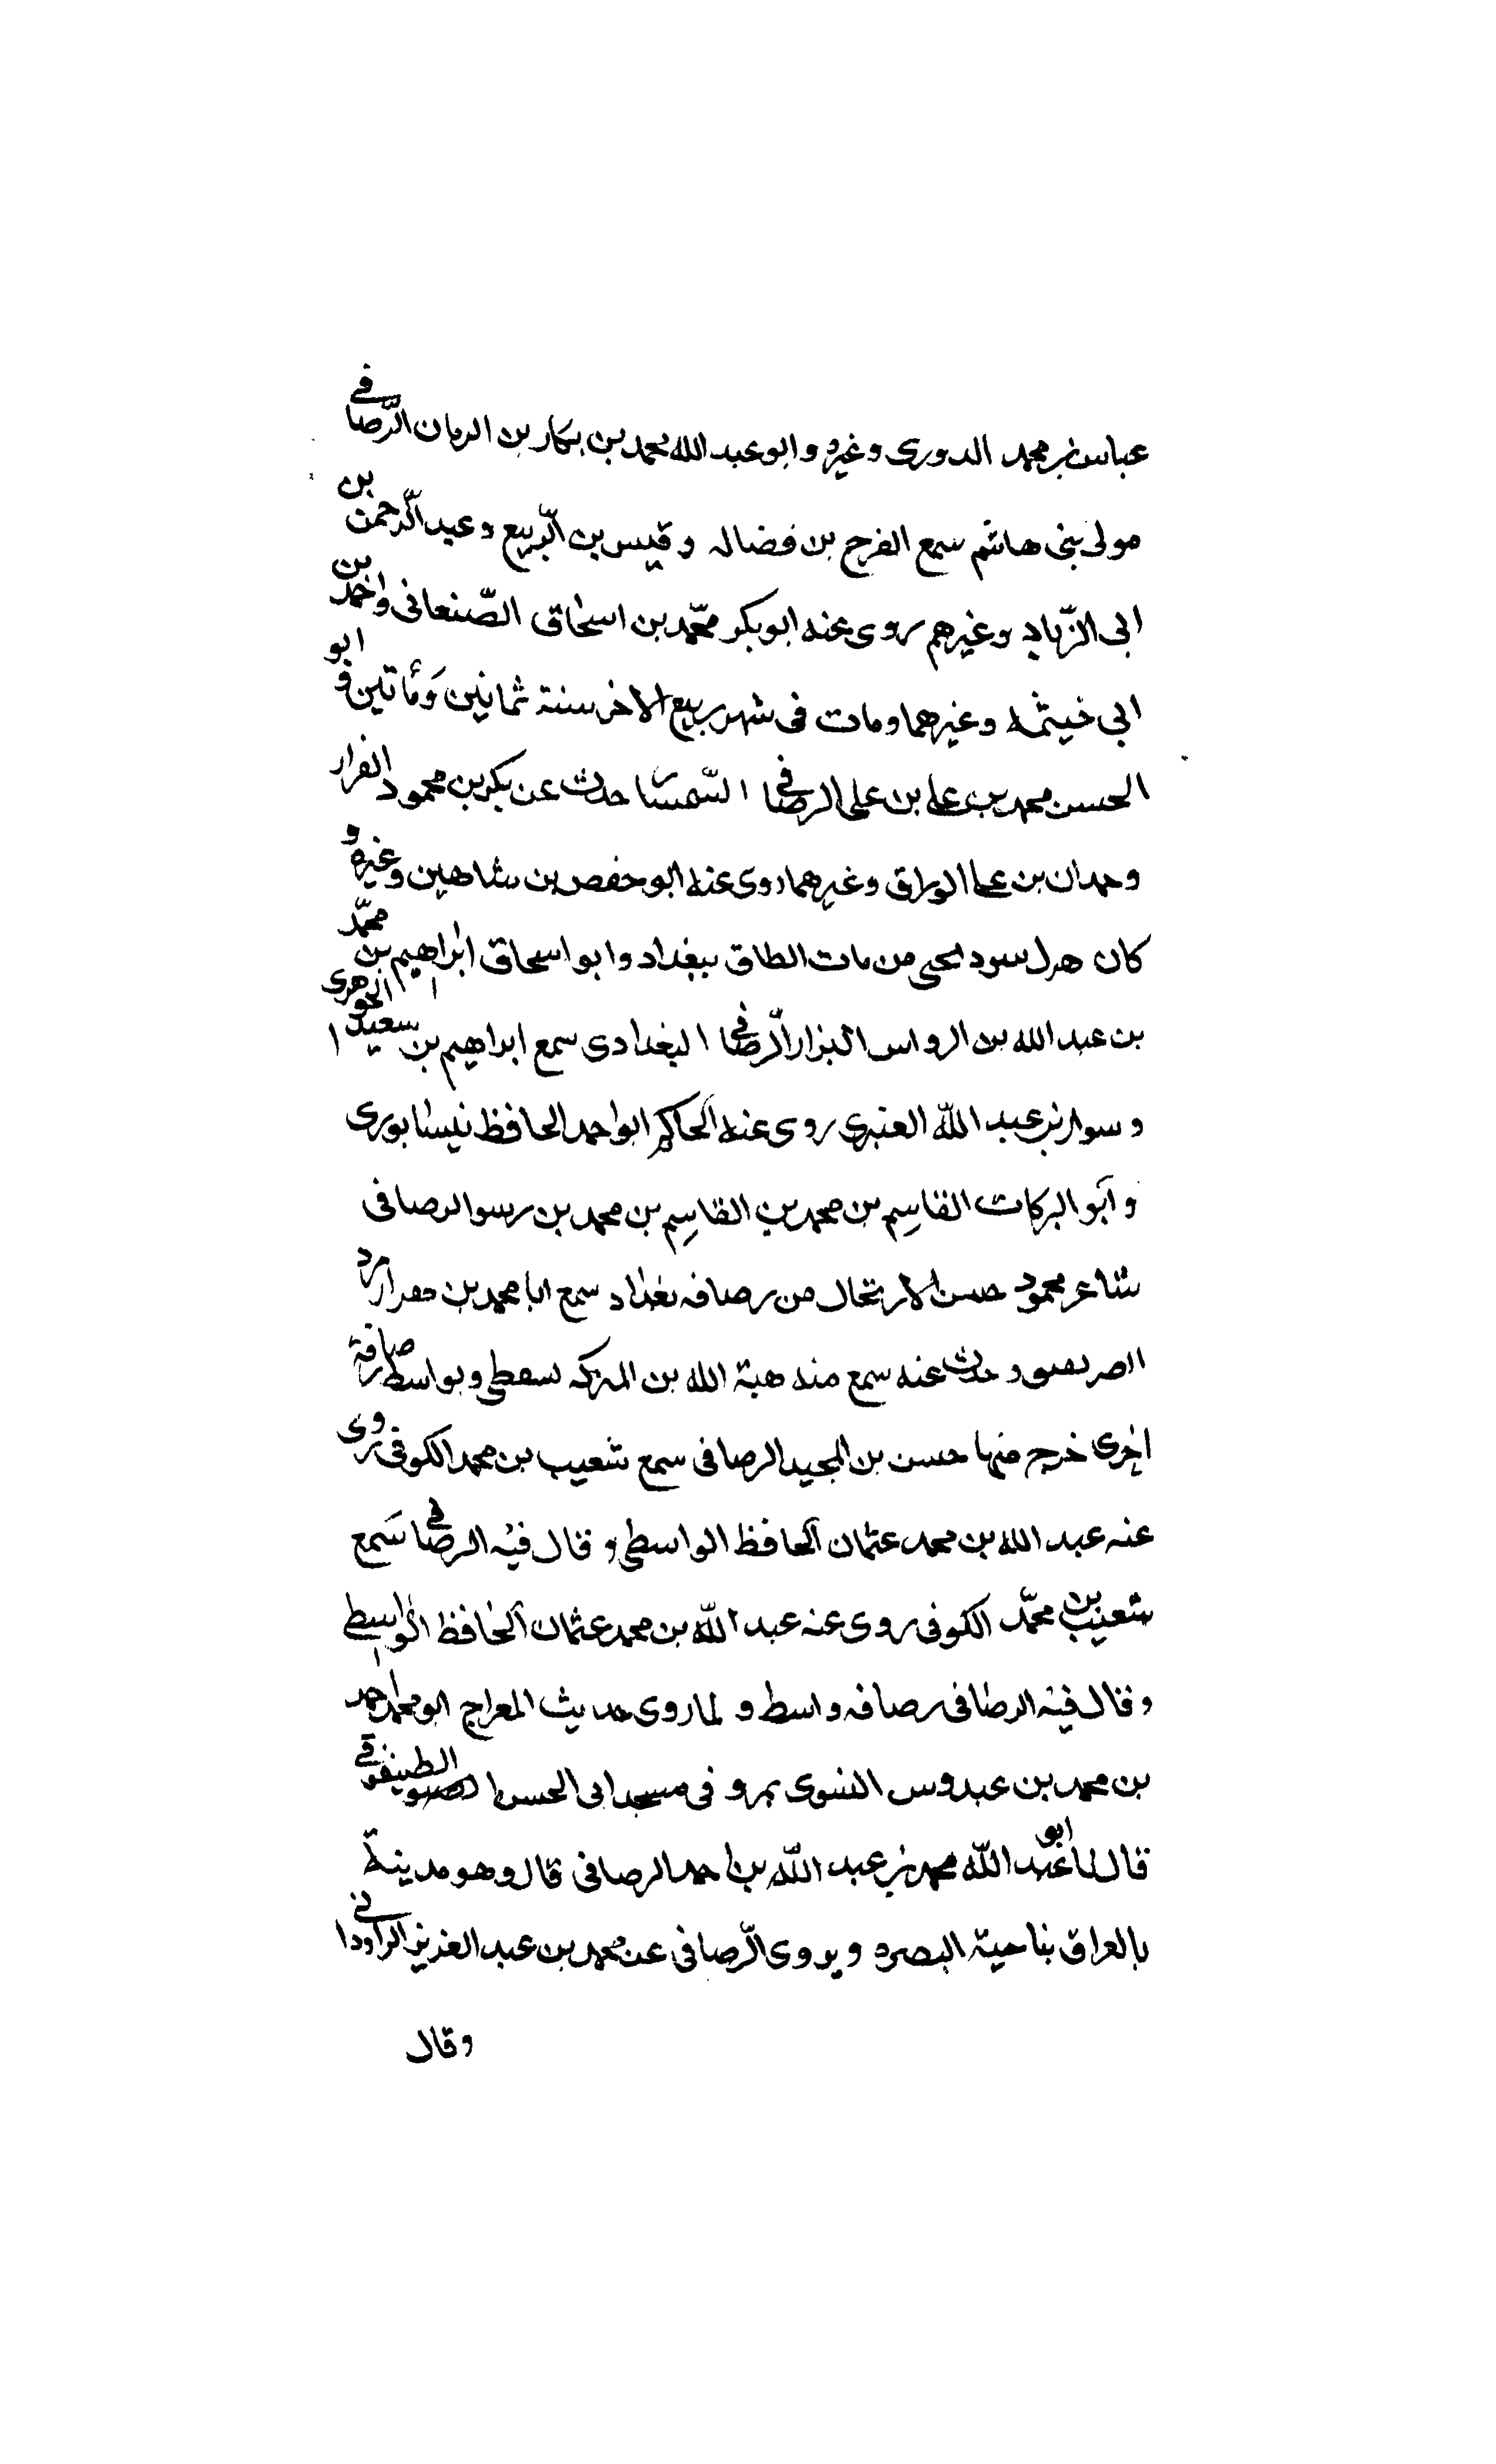 عباس بن محمد الدوری وغیره وابو عبد الله محمد بن بکار بن الریان الرّصافی
مولی بنی هاشم سمع الفرج بن فضاله وقیس بن الرّبیع وعبد الرّحمن بن
ابی الزّناد وغیرهم روی عنه ابو بکر محمّد بن اسحاق الصّنعانی واحمد بن
ابی خیثمه وغیرهما ومات فی شهر ربیع الاخر سنة ثمانین ومأتین و ابو
الحسن محمد بن علی بن علی الرصافی حدث عن بکر بن محمود الفرار
وحمدان بن علی الوراق وغیرهما روی عنه ابو حفص بن شاهین وغیره و
کان من مات الطاق ببغداد وابو اسحاق ابراهیم بن محمّد
بن عبد الله بن الرواس البزار الرّصافی البغدادی سمع ابراهیم بن سعید الجوهری
وسوار بن عبد اللّه العنبری روی عنه الحاکم ابو احمد الحافظ نیسابوری
وابو البرکات القاسم بن محمد بن القاسم بن محمد بن رسوا لرصافی
شاعر محمود حسن الارتحال من رصافه بغداد سمع ابا محمد بن
وحدث عنه سمع منه هبة الله بن المبرکه سقطی وبواسط رصافة
اخری خرج منها حسن بن المجید الرصافی سمع شعیب بن محمد الکوفی روی
عنه عبد الله بن محمد عثمان الحافظ الواسطی وقال فیه الرصافی سمع
شعیب بن محمّد الکوفی روی عنه عبد اللّه بن محمد عثمان الحافظ الواسطی
وقال فیه الرصافی رصافه واسط و لما روی حدیث المعراج ابو محمد احمد
بن محمد بن عبدوس النسوی بمرو فی مسجد ابی الحسن
قال لنا ابو عبد اللّه محمد بن عبد اللّه بن احمد الرصافی قال وهو مدینة
بالعراق بناحیة البصره ویروی الرّصافی عن محمد بن عبد العزیز الراوردانی
وقال